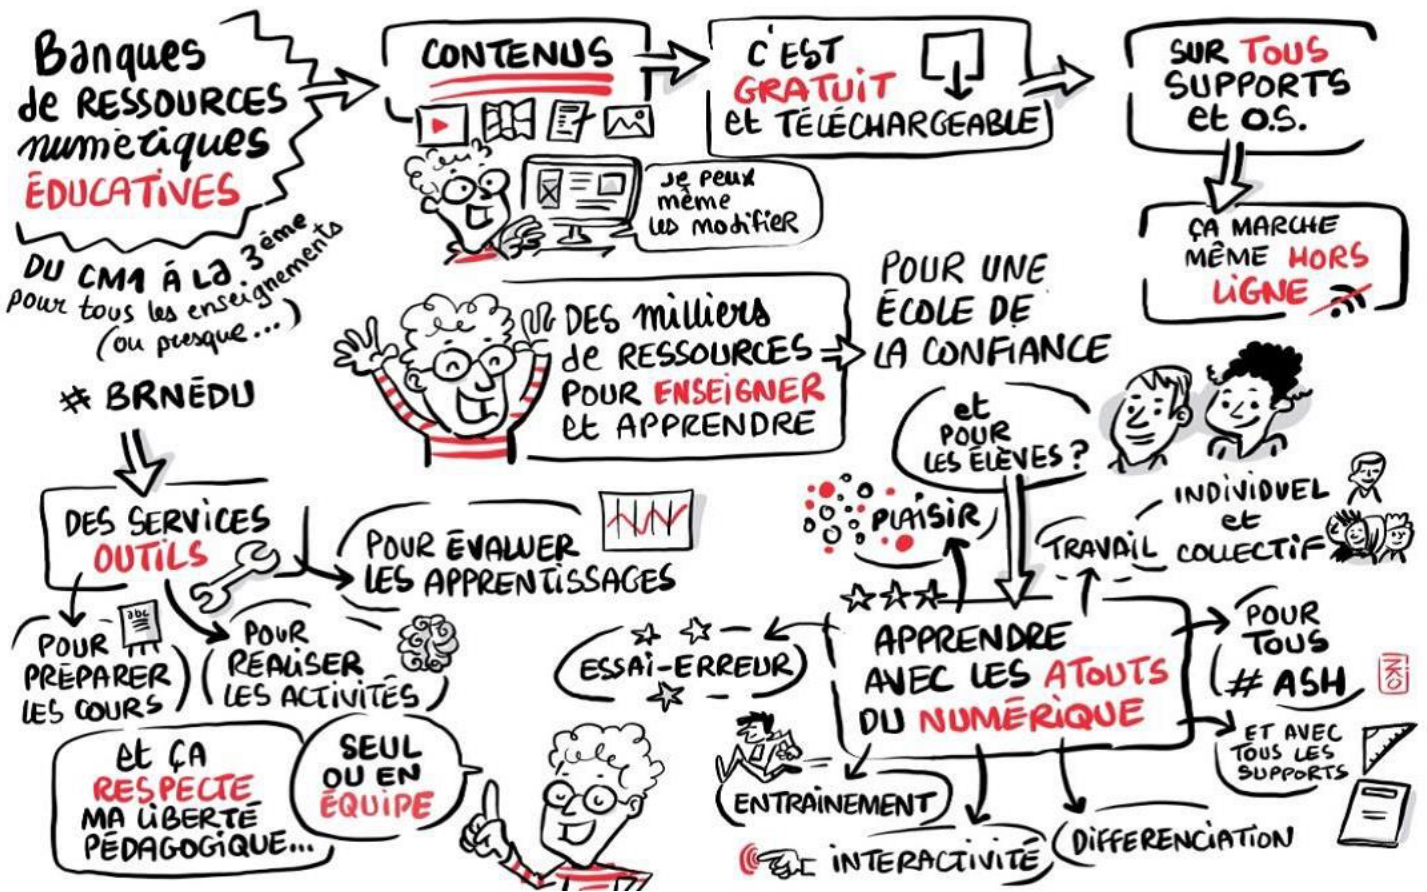 Banques
de RESSOURCES
numériques
ÉDUCATIVES
DU CM1 À La 3ème
pour tous les enseignements
(ou presque...)
# BRNÉDU
CONTENUS
C'EST
GRATUIT
et TÉLÉCHARGEABLE
SUR TOUS
SUPPORTS
et O.S.
ÇA MARCHE
MÊME HORS
LIGNE
Je peux
même
les modifier
DES milliers
de RESSOURCES
POUR ENSEIGNER
et APPRENDRE
POUR UNE
ÉCOLE DE
LA CONFIANCE
et
POUR
LES ÉLÈVES ?
DES SERVICES
OUTILS
POUR ÉVALUER
LES APPRENTISSAGES
abc
POUR
PRÉPARER
LES COURS
POUR
RÉALISER
LES ACTIVITÉS
et ÇA
RESPECTE
MA LIBERTÉ
PÉDAGOGIQUE...
SEUL
OU EN
ÉQUIPE
PLAISIR
TRAVAIL
INDIVIDUEL
et
COLLECTIF
ESSAI-ERREUR
APPRENDRE
AVEC LES ATOUTS
DU NUMÉRIQUE
POUR
TOUS
# ASH
ET AVEC
TOUS LES
SUPPORTS
ENTRAÎNEMENT
INTERACTIVITÉ
DIFFERENCIATION